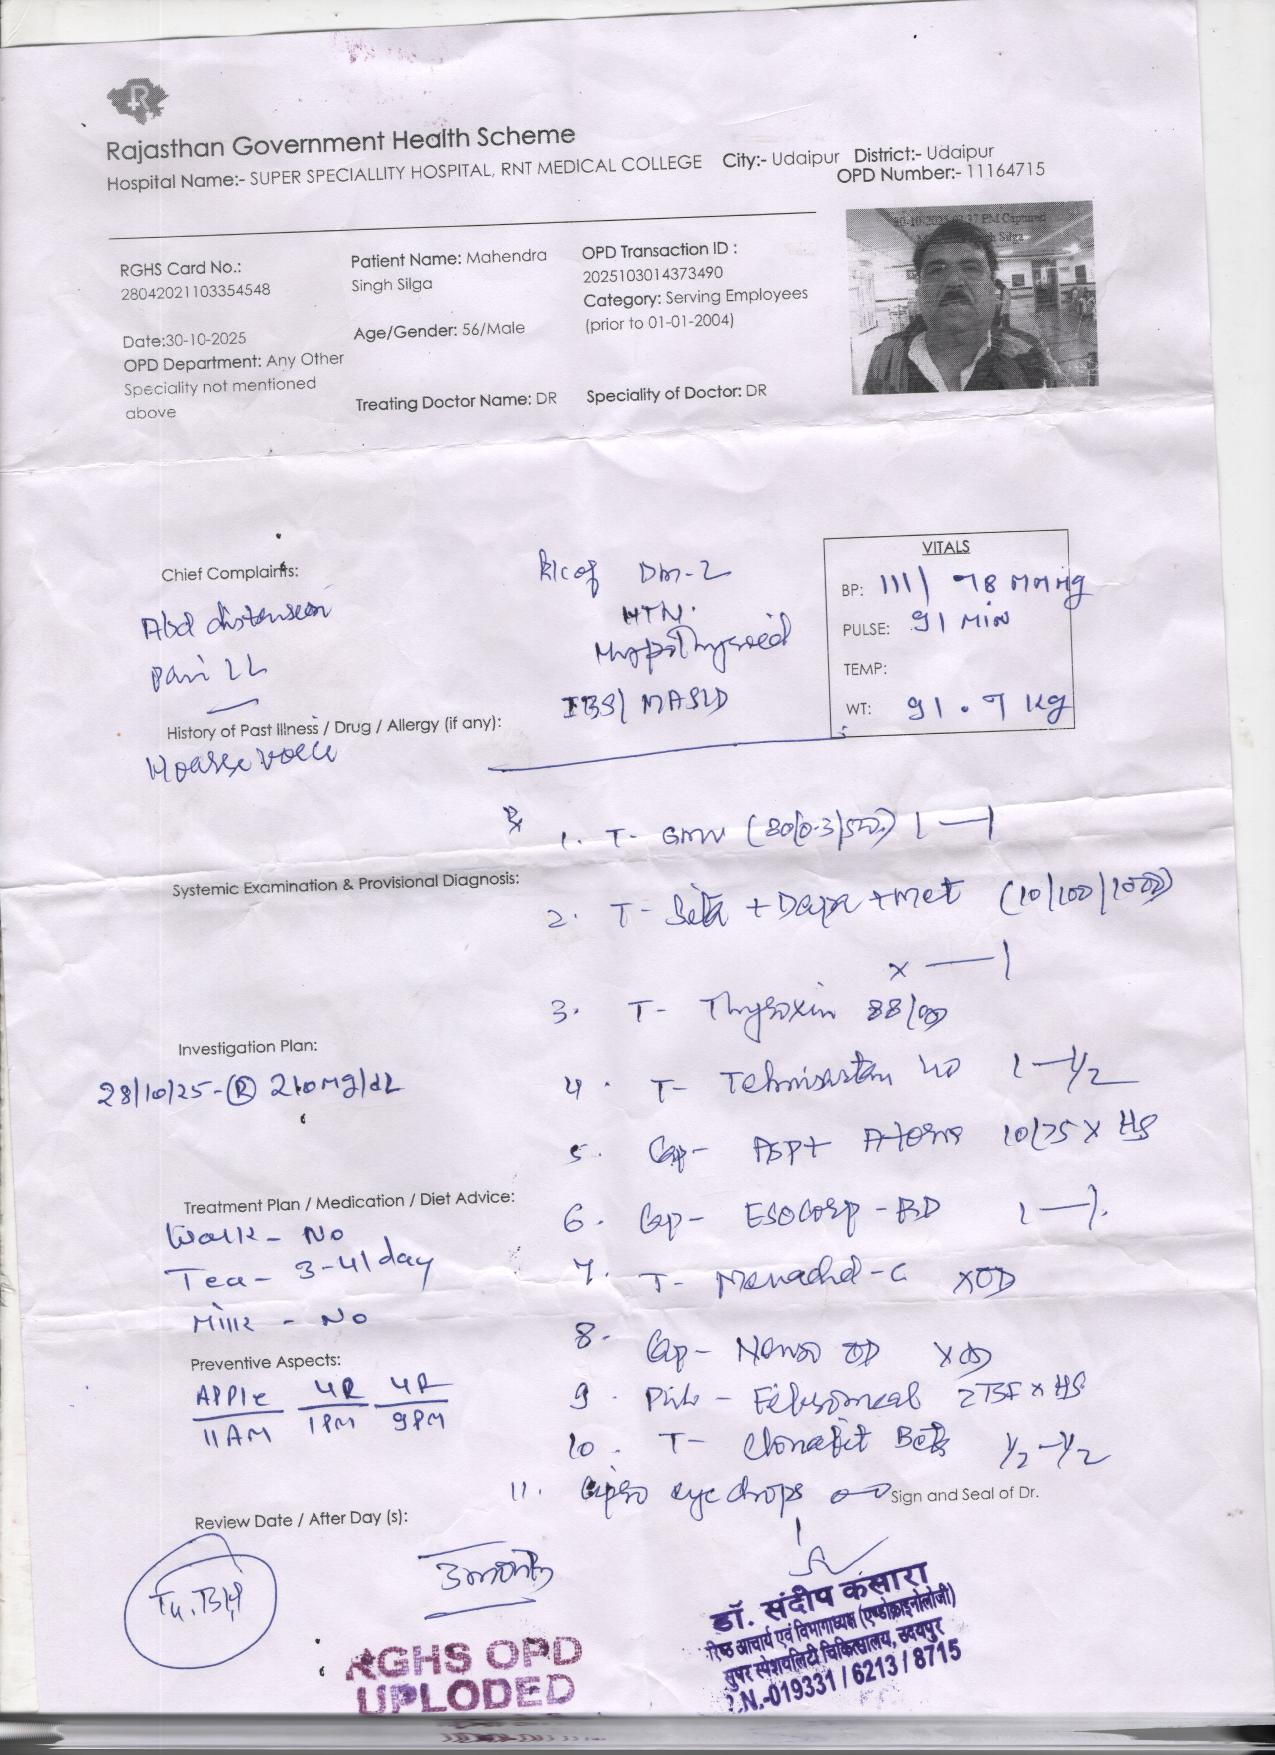 Rajasthan Government Health Scheme
Hospital Name:- SUPER SPECIALLITY HOSPITAL, RNT MEDICAL COLLEGE City:- Udaipur District:- Udaipur
OPD Number:- 11164715
RGHS Card No.:
28042021103354548
Date:30-10-2025
OPD Department: Any Other
Speciality not mentioned
above
Patient Name: Mahendra
Singh Silga
Age/Gender: 56/Male
Treating Doctor Name: DR
OPD Transaction ID :
2025103014373490
Category: Serving Employees
(prior to 01-01-2004)
Speciality of Doctor: DR
PM Captured
Silga
Chief Complaints:
Abd distension
Pain LL
History of Past Illness / Drug / Allergy (if any):
Hoarse voice
K/c of DM-2
HTN.
Hypothyroid
IBS/ MASLD
VITALS
BP: 111/78 mmHg
PULSE: 91 MIN
TEMP:
WT: 91.7 Kg
Rx
1. T- GMV (80/0.3/500) 1—1
Systemic Examination & Provisional Diagnosis:
2. T- Sita + Dapa + Met (10/100/1000)
x —1
3. T- Thyroxin 88/OD
Investigation Plan:
28/10/25-(R) 210mg/dL
4. T- Telmisartan 40 1—1/2
5. Cap- ASP+ Atorva 10/75 x HS
Treatment Plan / Medication / Diet Advice:
Walk - No
Tea - 3-4/day
Milk - No
6. Cap- ESOCorp-RD 1—1.
7. T- -C XOD
8. Cap- OD XOD
Preventive Aspects:
APPle 4R 4R
11AM 1PM 9PM
9. - 2TSF x HS
10. T- 1/2-1/2
11. eye drops
Sign and Seal of Dr.
Review Date / After Day (s):
3 month
डॉ. संदीप कंसारा
रिष्ठ आचार्य एवं विभागाध्यक्ष (एण्डोक्राइनोलोजी)
सुपर स्पेशयलिटी चिकित्सालय, उदयपुर
.N.-019331 / 6213 / 8715
RGHS OPD
UPLODED